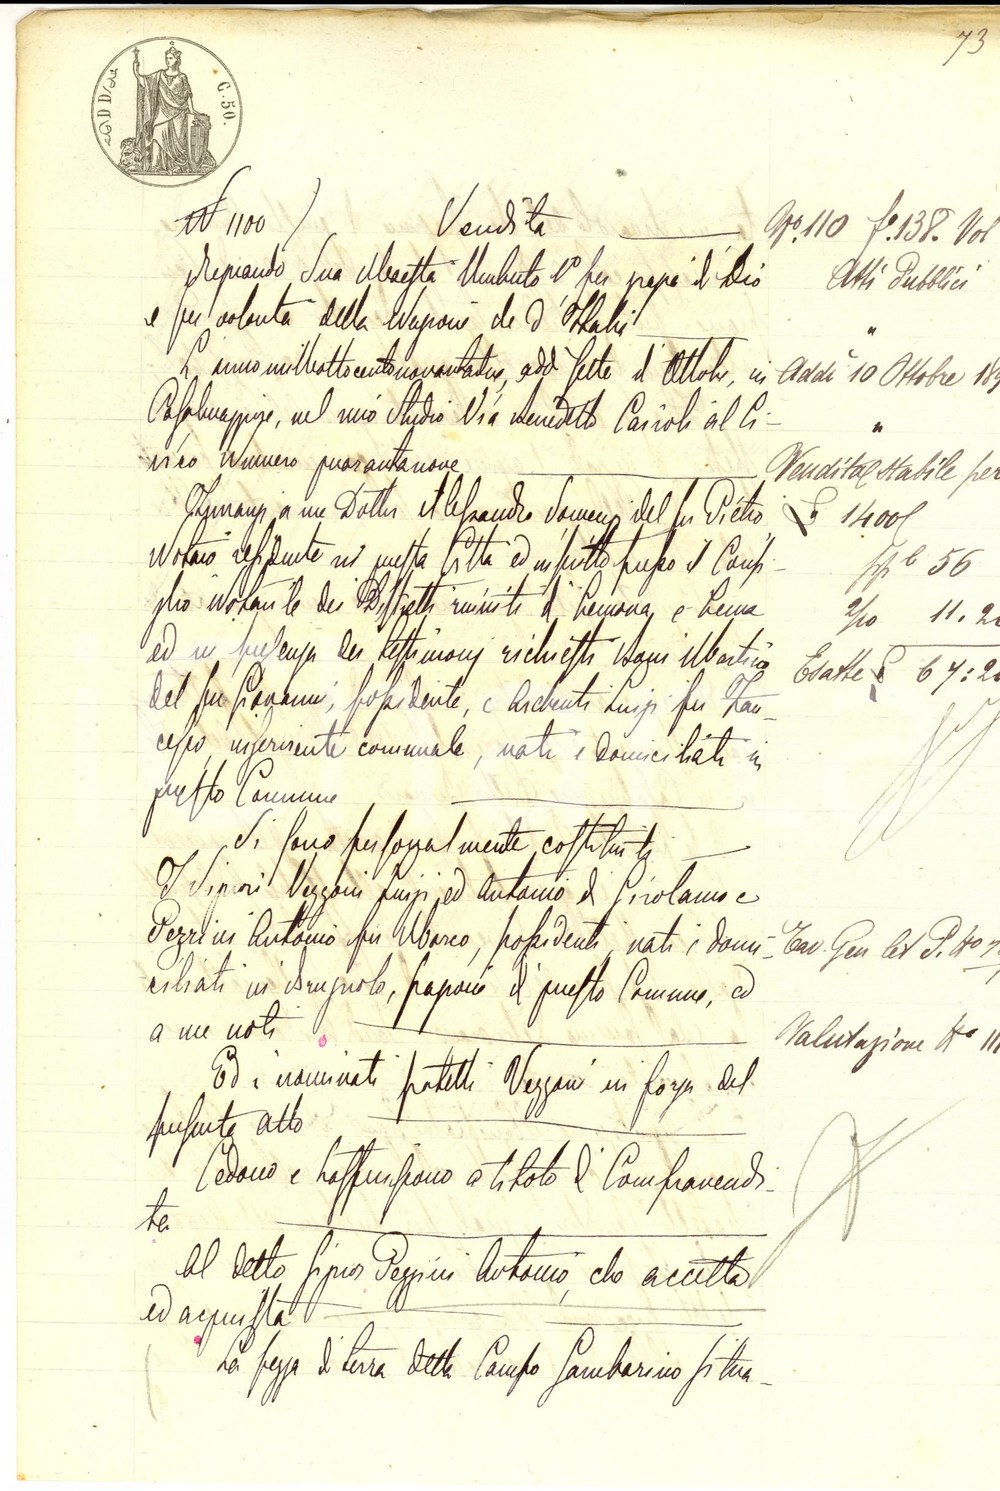 73
C. 50.
N 1100
Vendita
Regnando Sua Maestà Umberto I° per grazia di Dio
e per volontà della Nazione Re d'Italia
L'anno milleottocentonovantadue, addì sette di Ottobre, in
Casalmaggiore, nel mio Studio Via Benedetto Cairoli al Ci-
vico numero quarantanove
Innanzi a me Dottor Alessandro del fu Pietro
Notaio residente in questa Città ed inscritto presso il Consi-
glio Notarile dei Distretti riuniti di Cremona e Crema
ed in presenza dei testimonj richiesti Martino
del fu Giovanni, possidente, e Luigi fu Fran-
cesco, inserviente comunale, nati e domiciliati in
questo Comune
Si sono personalmente costituiti
I Signori Vezzoni Luigi ed Antonio di Girolamo e
Pezzini Antonio fu Marco, possidenti, nati e domi-
ciliati in Brugnolo, frazione di questo Comune, ed
a me noti
Ed i nominati fratelli Vezzoni in forza del
presente atto
Cedono e trasferiscono a titolo di Compravendi-
ta
Al detto Signor Pezzini Antonio, che accetta
ed acquista
La pezza di terra detta Campo Gambarino situa-
N°. 110 f°. 138. Vol
Atti Pubblici
"
Addì 10 Ottobre 189
"
Vendita stabile per
£ 1400
56
11.20
Esatte £ 67:20
Tav. Gen. del P. N°
Valutazione N°